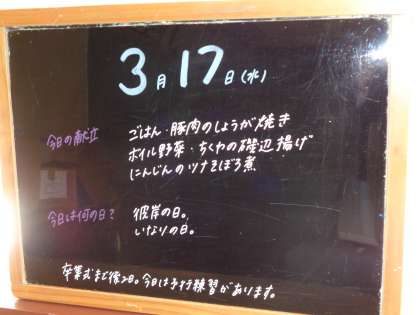 3月17日(水)
今日の献立 ごはん・豚肉のしょうが焼き
ボイル野菜・ちくわの磯辺揚げ
にんじんのツナそぼろ煮
今日は何の日? 彼岸の日。
いなりの日。
卒業式まで後2日。今日は予行練習があります。